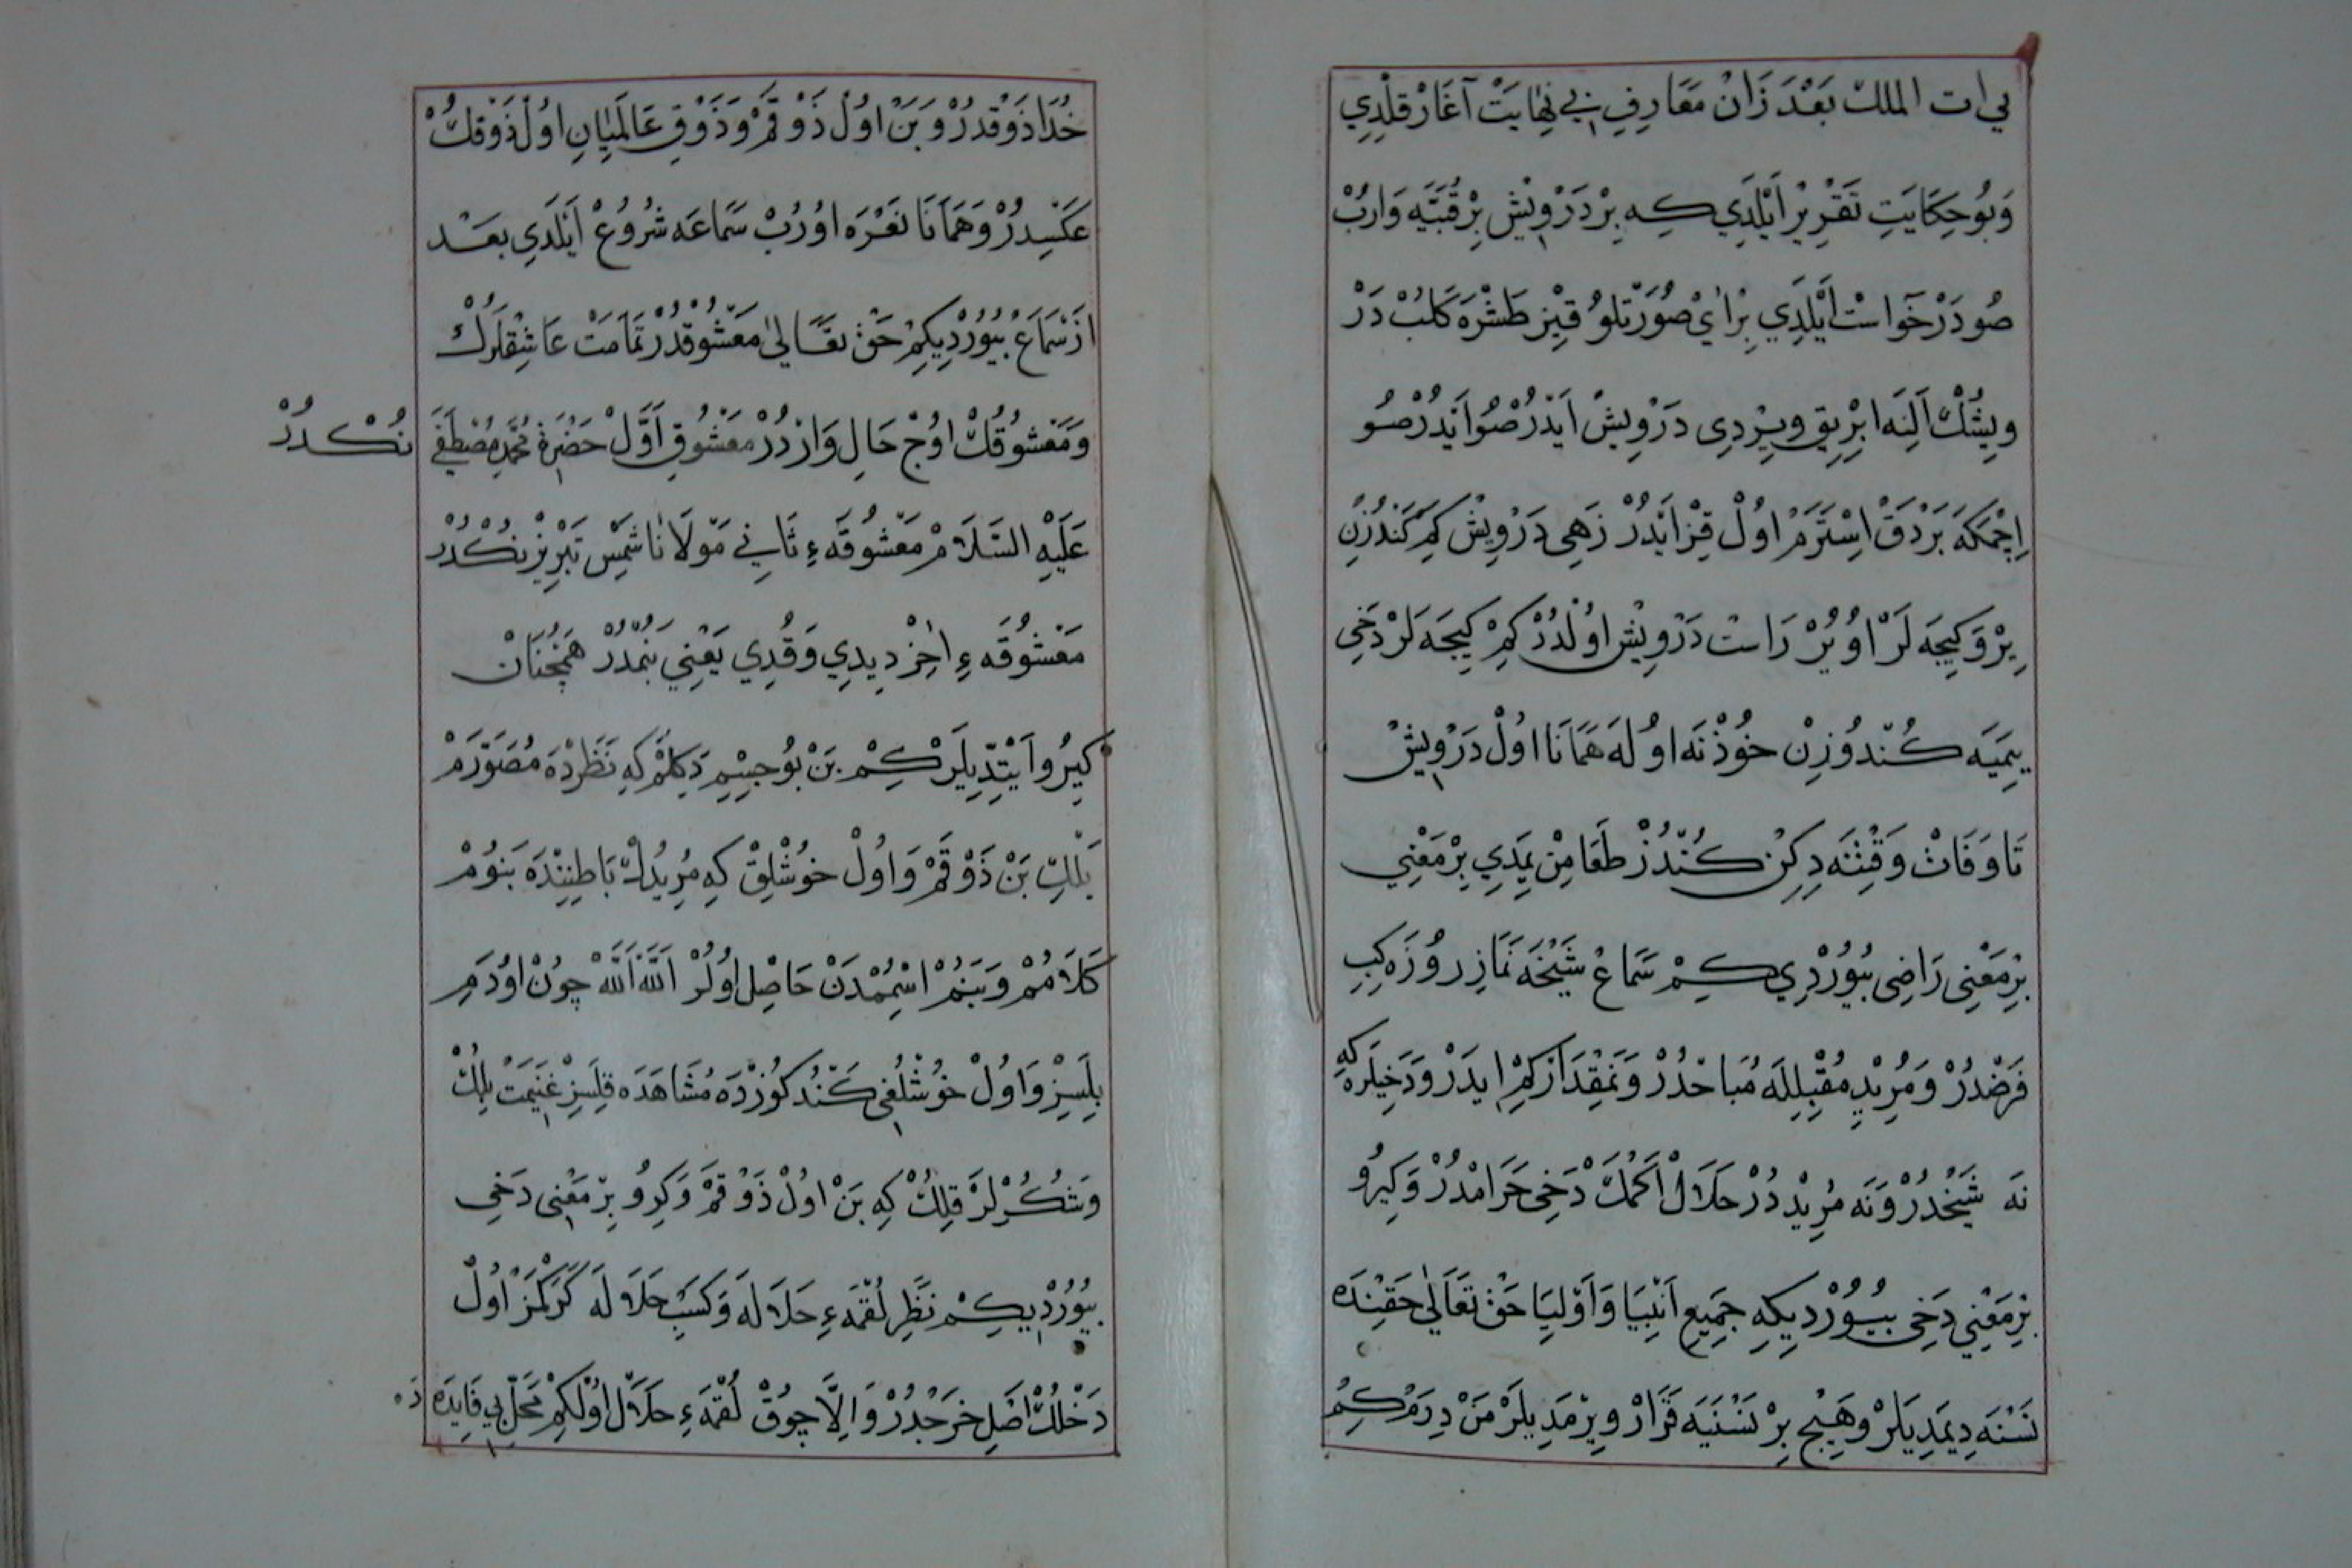 بي ات الملك بَعْدَ زَانْ مَعَارِفِ بِي نِهَايَتْ آغَازْ قِلْدِي
وَبُو حِكَايَتِ تَقْرِيرْ اَيْلَدِي كِه بِرْ دَرْوِيشْ بِرْ قُبَّيَه وَارُبْ
صُو دَرْخَواسْت اَيْلَدِي بِرْ اَيْ صُورَتْلُو قِيزْ طَشْرَه كَلُبْ دَرْ
وِيشُكْ اَلِنَه ابْرِيقِ وِيرْدِي دَرْوِيشْ اَيْدُرْ صُو اَيْدُرْ صُو
اِچْمَكَه بَرْدَقْ اِسْتَرَمْ اوُلْ قِزْ اَيْدُرْ زَهِي دَرْوِيشْ كِمْ كَنْدُزِنِ
يِرْ وَكِيجَه لَرْ اوُيُرْ رَاسْت دَرْوِيشْ اوُلْدُرْ كِمْ كِيجَه لَرْ دَخِي
يِيمَيَه كُنْدُوزِنْ خُوذْ نَه اوُلَه هَمَانَا اوُلْ دَرْوِيشْ
تَا وَفَاتْ وَقْتِنَه دِكِنْ كُنْدُزْ طَعَامِنْ يِمَدِي بِرْ مَعْنِي
بِرْ مَعْنِى رَاضِى بُيُورْدِي كِمْ سَمَاعْ شَيْخَه نَمَازِ رُوزَه كِبِ
فَرْضْدُرْ وَمُرِيدِ مُقْبِلِلَه مُبَاحْدُرْ وَنَمِقْدَازْكِمْ ايدَرْ وَدَخِيلَرَه كِه
نَه شَيْخْدُرْ وَنَه مُرِيدْ دُرْ حَلَالْ اَكْمَكْ دَخِي حَرَامْدُرْ وَكِيرُو
بِرْ مَعْنِي دَخِى بُيُورْدِيكِه جَمِيعِ اَنْبِيَا وَاَوْلِيَا حَقْ تَعَالَى حَقِنْدَه
نَسْنَه دِيمَدِيلَرْ وَهِيچْ بِرْ نَسْنَيَه قَرَارْ وِيرْمَدِيلَرْ مَنْ دِرَمْكِمْ
خُدَا ذَوْقْدُرْ وَبَنْ اوُلْ ذَوْقَمْ وَذَوْقِ عَالَمِيَانِ اوُلْ ذَوْقِكْ
عَكْسِدُرْ وَهَمَانَا نَعْرَه اوُرُبْ سَمَاعَه شُرُوعْ اَيْلَدِي بَعْد
ازْ سَمَاعْ بُيُورْدِيكِمْ حَقْ تَعَالىٰ مَعْشُوقْدُرْ تَمَامَتْ عَاشِقْلَرُكْ
وَمَعْشُوقُكْ اوُچْ حَالِ وَارْدُرْ مَعْشُوقِ اَوَّلْ حَضْرَةِ مُحَمَّدِ مُصْطَفَى نُكْدُرْ
عَلَيْهِ السَّلَامْ مَعْشُوقَهءِ ثَانِي مَوْلَانَا شَمْسِ تَبْرِيزِنُكْدُرْ
مَعْشُوقَهءِ اخِرْ دِيدِي وَقُدِي يَعْنِي بَنُمْدُرْ هَمْچُنَانْ
كِيرُو اَيْتِدِيلَرْ كِمْ بَنْ بُو جِسْمِ دَكِلَمْ كِه نَظَرْدَه مُصَوَّرَمْ
بَلْكِ بَنْ ذَوْقَمْ وَاوُلْ خُوشْلِقْ كِه مُرِيدُكْ بَاطِنِنْدَه بَنُومْ
كَلَامُمْ وَبَنُمْ اسْمُمْدَنْ حَاصِلْ اوُلُرْ اَللّٰه اَللّٰه چُونْ اوُدَمِ
بِلَسِزْ وَاوُلْ خُوشْلُغِى كَنْدُكُوزْدَه مُشَاهَدَه قِلَسِزْ غَنِيمَتْ بِلِكْ
وَشُكُرْلَرْ قِلِكْ كِه بَنْ اوُلْ ذَوْقَمْ وَكِرُو بِرْ مَعْنِى دَخِي
بُيُورْدِيكِمْ نَظَرِ لُقْمَهءِ حَلَالَه وَكَسْبِ حَلَالَه كَرَكْمَزْ اوُلْ
دَخْلُكْ اَصْلِ خَرْجْدُرْ وَاِلَّا چُوقْ لُقْمَهءِ حَلَالْ اوُلْكِمْ مَحَلِّ بِي فَايِدَه دَه